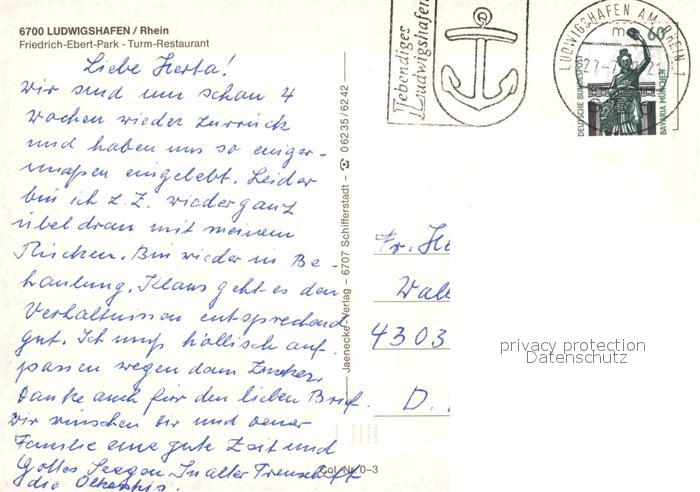 6700 LUDWIGSHAFEN / Rhein
Friedrich-Ebert-Park - Turm-Restaurant
Liebe Herta!
Wir sind nun schon 4
Wochen wieder zurück
und haben uns so einiger-
maßen eingelebt. Leider
bin ich z.Z. wieder ganz
übel dran mit meinem
Rücken. Bin wieder in Be-
handlung. Klaus geht es den
Verhältnissen entsprechend
gut. Ich muß höllisch auf-
passen wegen dem Zucker.
Danke auch für den lieben Brief.
Wir wünschen Dir und Deiner
Familie eine gute Zeit und
Gottes Seegen. In alter Freundschaft
die
Jaenecke-Verlag - 6707 Schifferstadt - 06235/6242
Col. Nr. 0-3
lebendiges
Ludwigshafen
LUDWIGSHAFEN AM RHEIN 1
60
DEUTSCHE BUNDESPOST
BAVARIA MÜNCHEN
Fr. He
4303
D.
privacy protection
Datenschutz